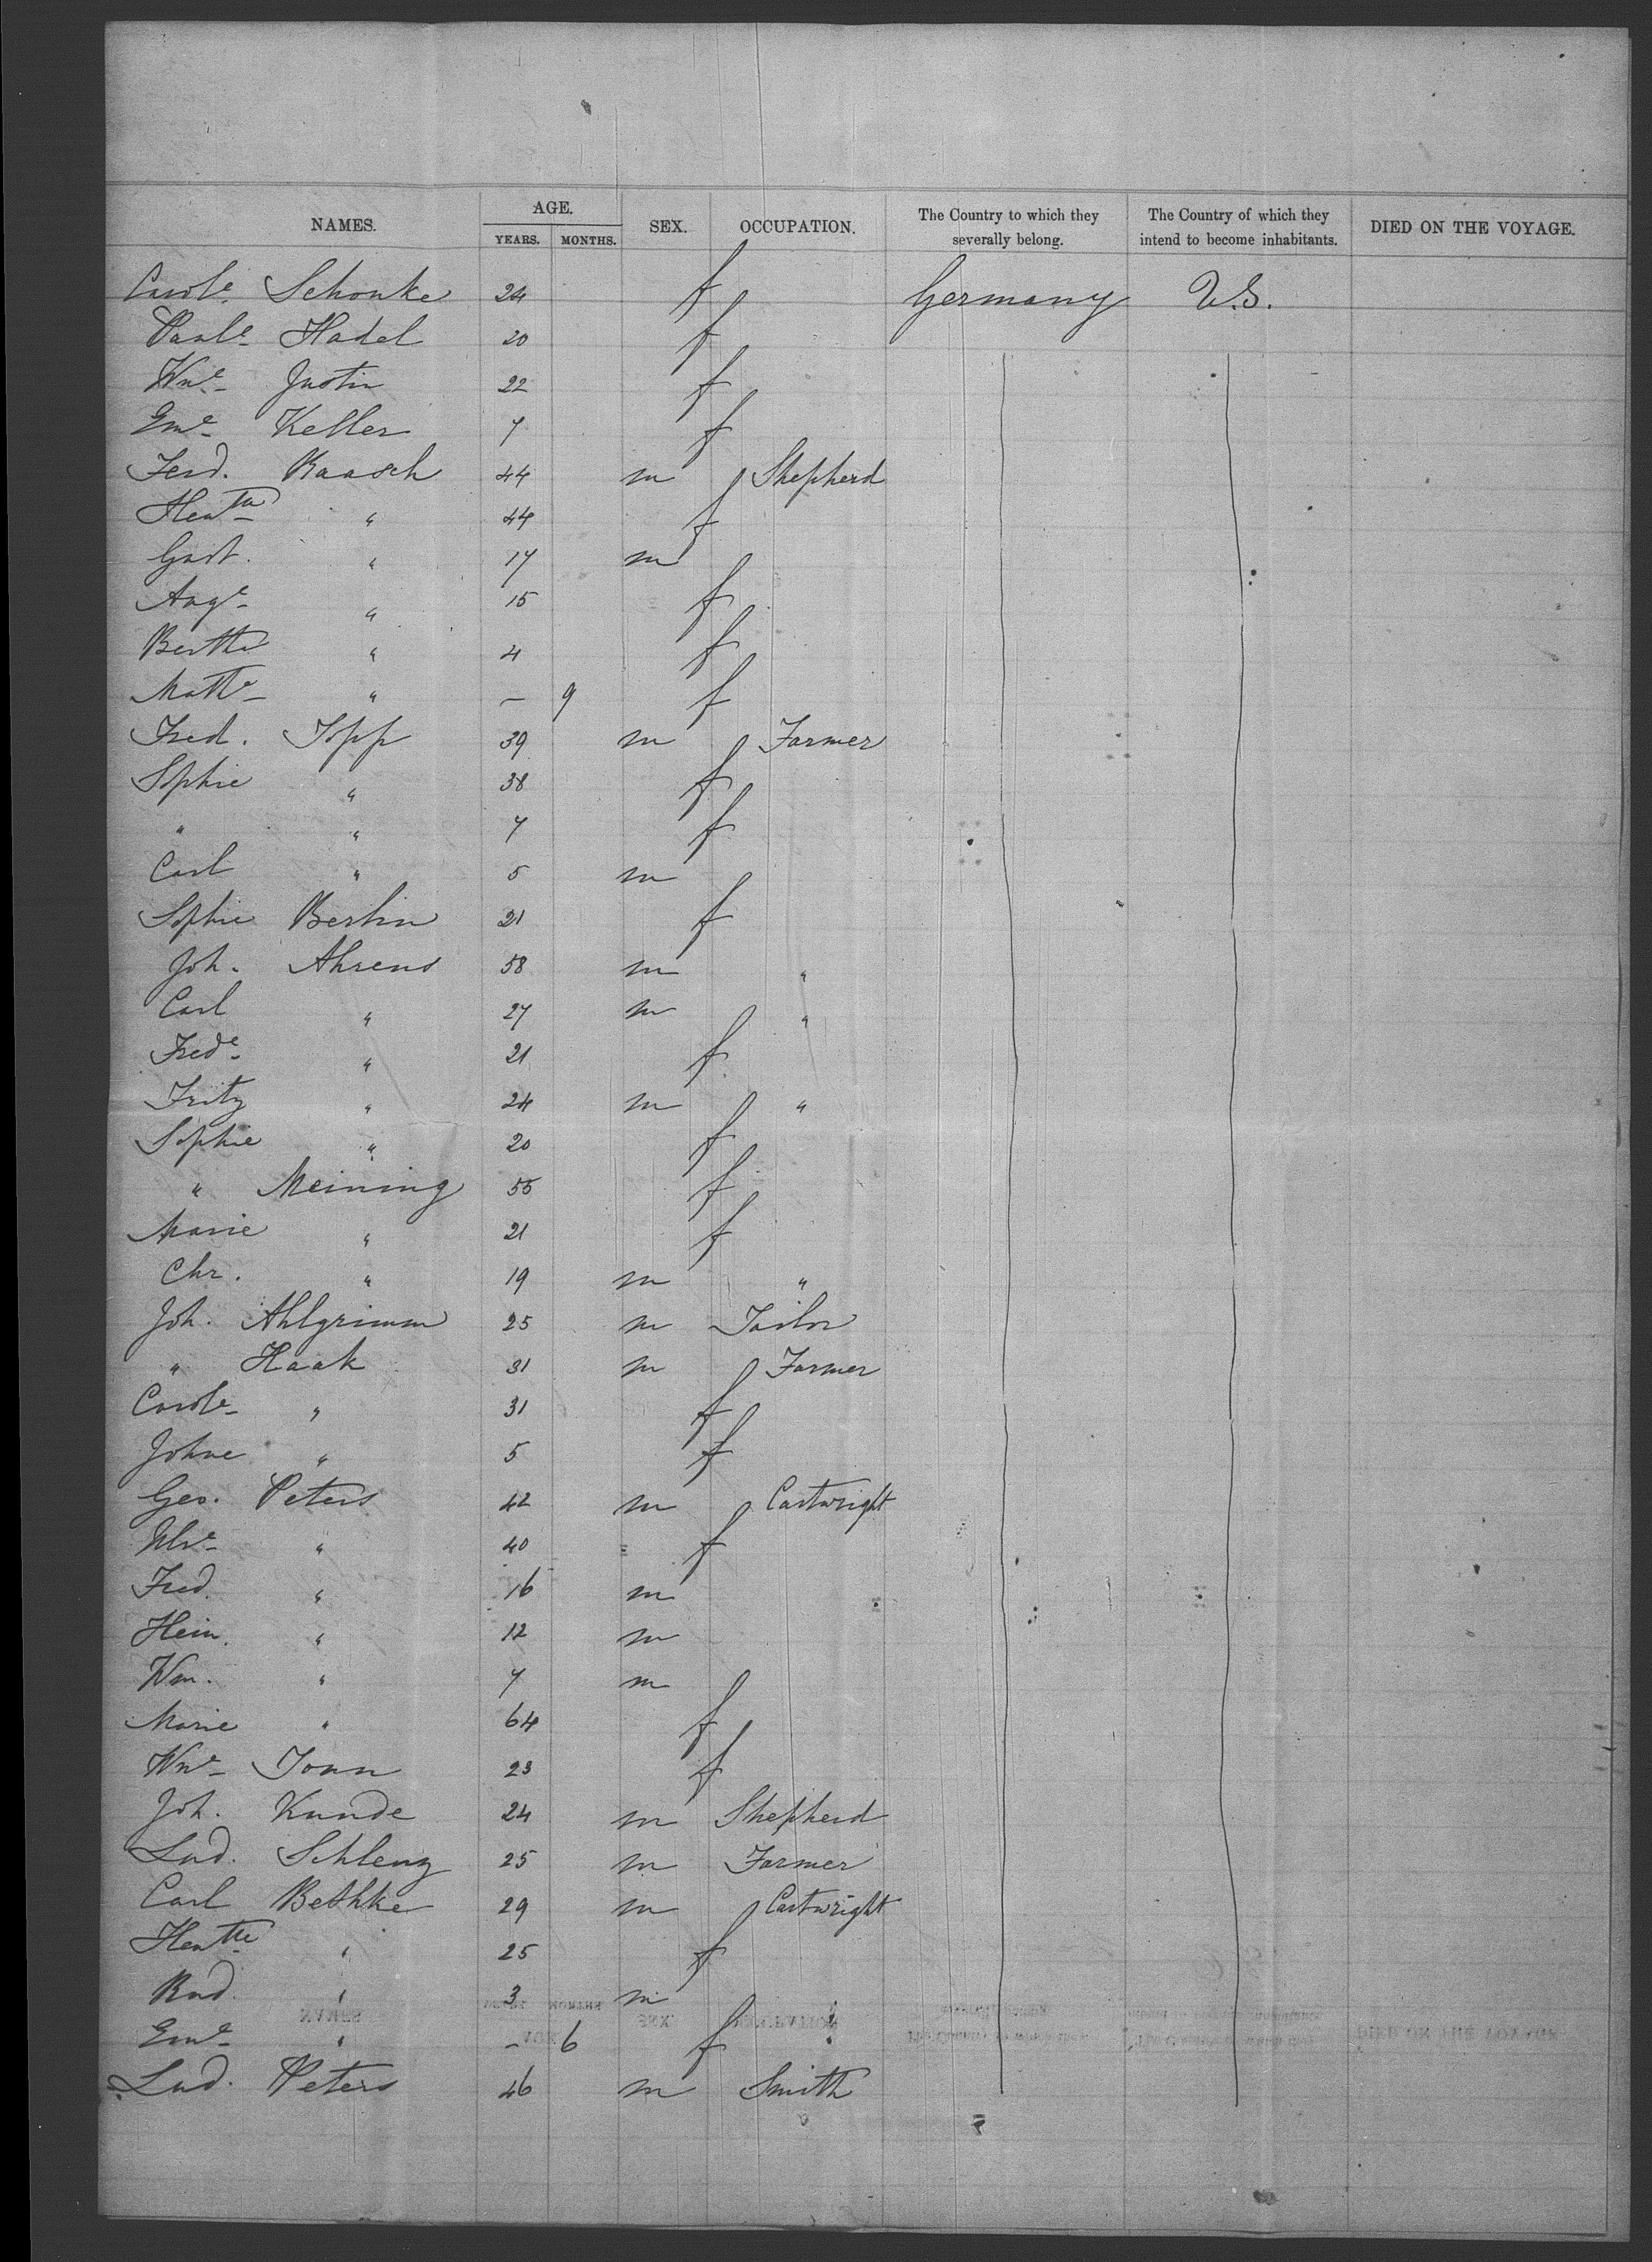 NAMES. AGE. YEARS. MONTHS. SEX. OCCUPATION. The Country to which they severally belong. The Country of which they intend to become inhabitants. DIED ON THE VOYAGE.
Carole Schonke 24 f Germany U.S.
Paule Hadel 20 f
Wme Justin 22 f
Eme Keller 7 f
Ferd. Raasch 44 m Shepherd
Hentte " 44 f
Gust. " 17 m
Auge " 15 f
Bertha " 4 f
Mathe " – 9 f
Fred. Topp 39 m Farmer
Sophie " 38 f
" " 7 f
Carl " 5 m
Sophie Berlin 21 f
Joh. Ahrens 58 m "
Carl " 27 m "
Frede " 21 f
Fritz " 24 m "
Sophie " 20 f
" Meining 55 f
Marie " 21 f
Chr. " 19 m "
Joh. Ahlgrimm 25 m Tailor
" Haak 31 m Farmer
Carole " 31 f
Johne " 5 f
Geo. Peters 42 m Cartwright
" 40 f
Fred. " 16 m
Hein. " 12 m
Wm. " 7 m
Marie " 64 f
Wme Tonn 23 f
Joh. Kunde 24 m Shepherd
Lud. Schlenz 25 m Farmer
Carl Bethke 29 m Cartwright
Hentte " 25 f
Rud. " 3 m
Eme " – 6 f
Lud. Peters 46 m Smith